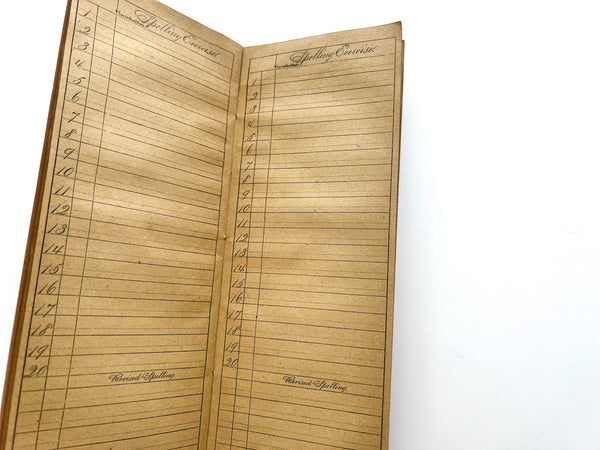 Spelling Exercise.
1
2
3
4
5
6
7
8
9
10
11
12
13
14
15
16
17
18
19
20
Revised Spelling.
Spelling Exercise.
1
2
3
4
5
6
7
8
9
10
11
12
13
14
15
16
17
18
19
20
Revised Spelling.